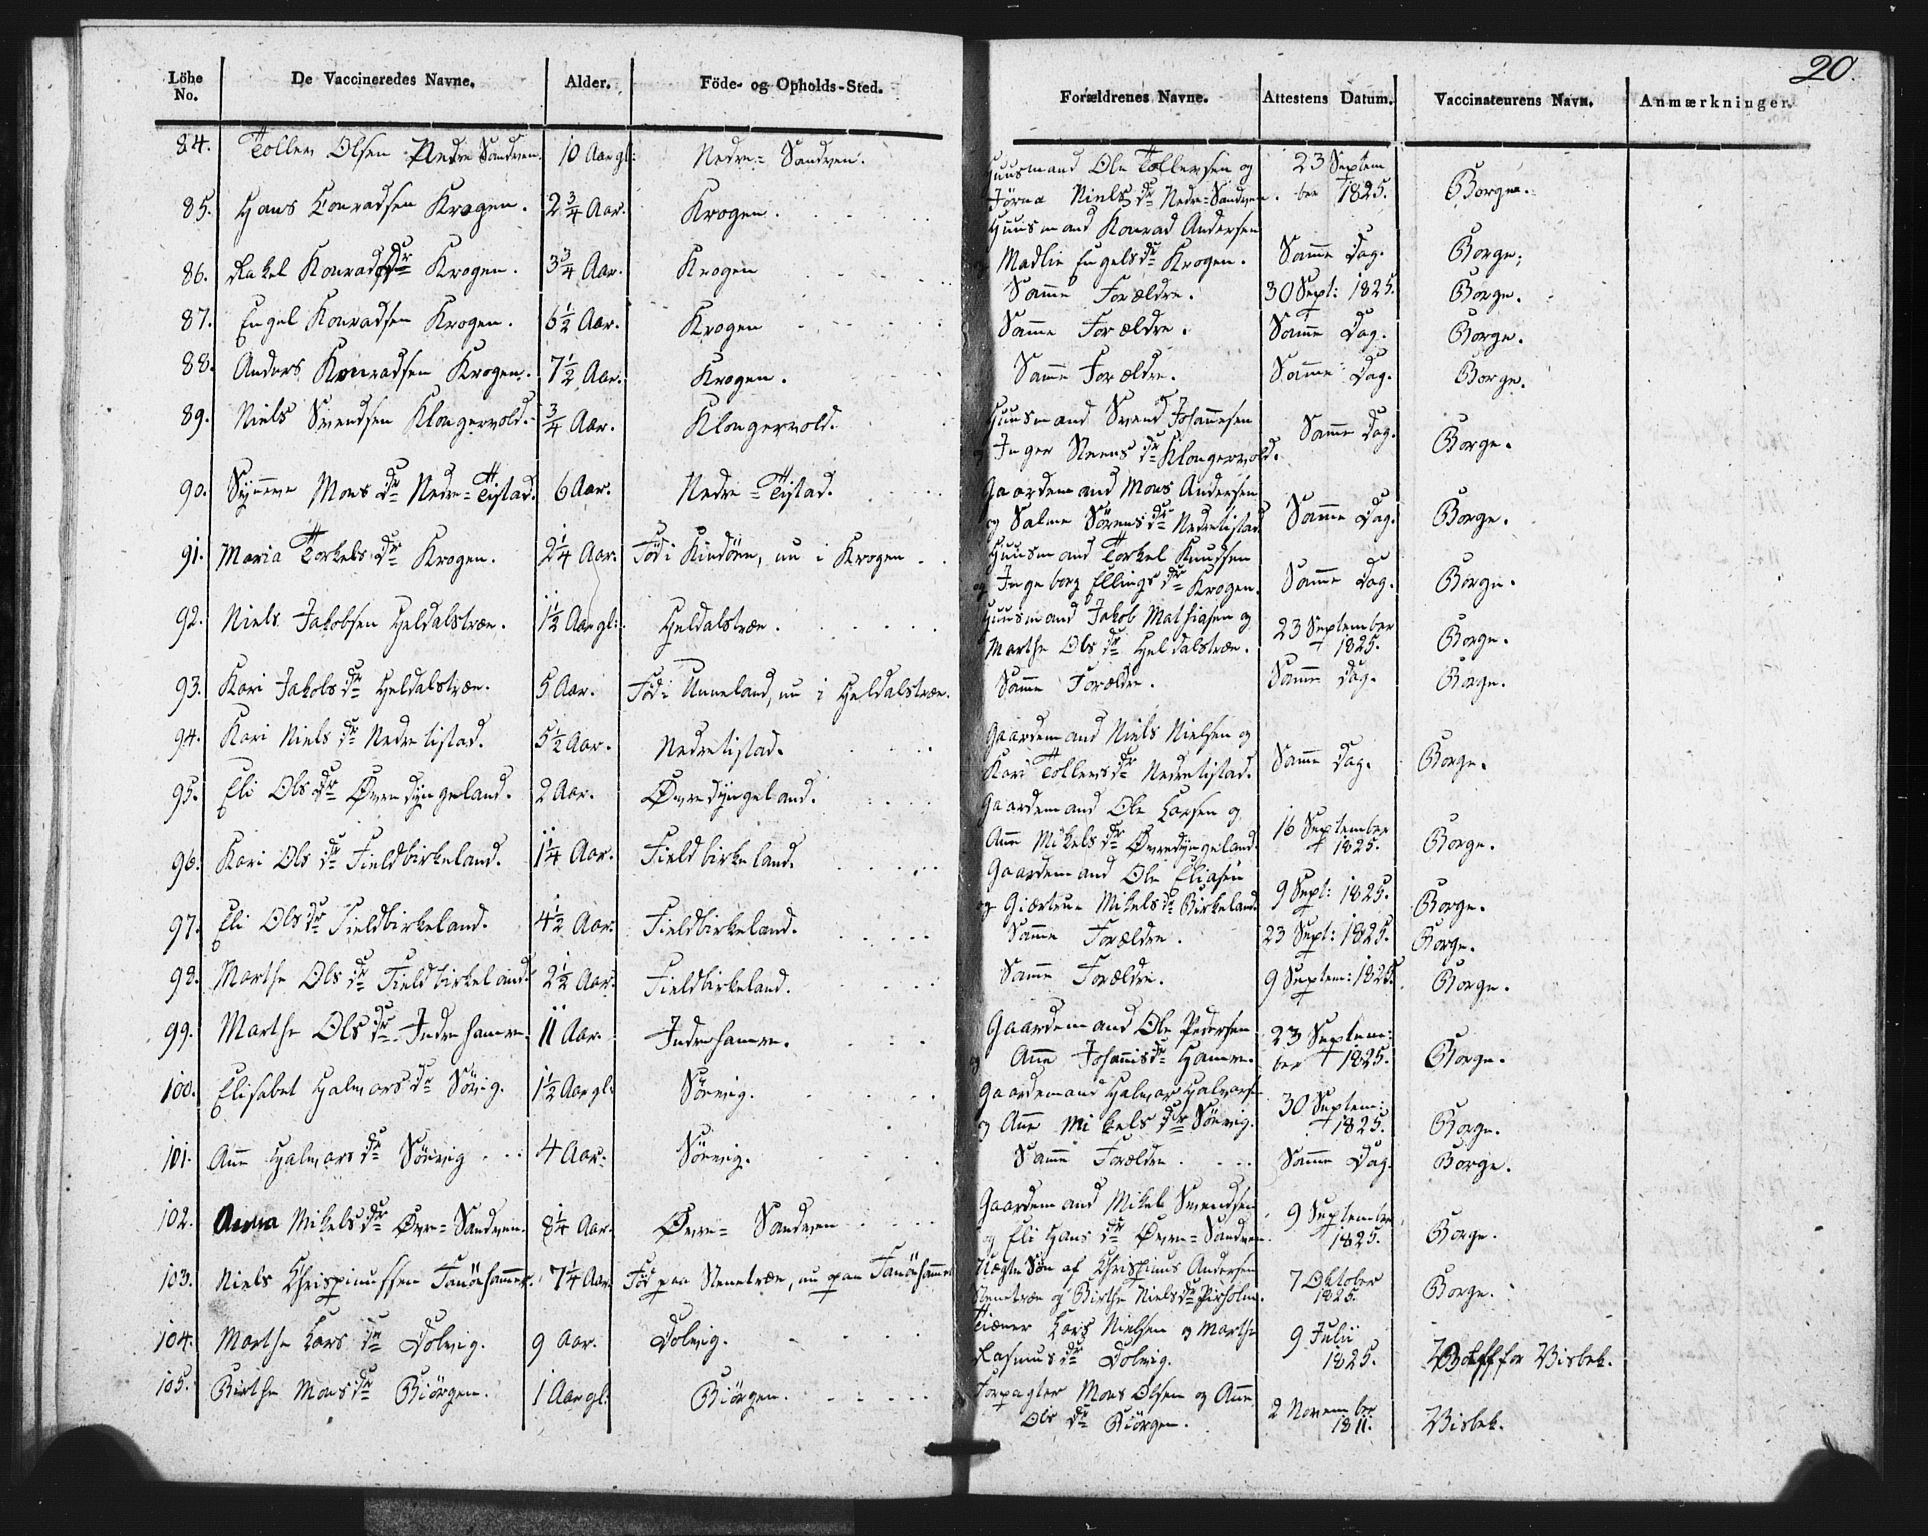 20.
Löbe No. De Vaccineredes Navne. Alder. Föde- og Opholds-Sted. Forældrenes Navne. Attestens Datum. Vaccinateurens Navn. Anmærkninger.
84. Tollev Olsen Nedre Sandven. 10 Aar gl: Nedre= Sandven. Huusmand Ole Tollevsen og 23 Septem
Jörna Niels dr Nedre=Sandven. ber 1825. Borge.
85. Hans Conradsen Krogen. 2 3/4 Aar. Krogen. Huusmand Konrad Andersen
Madlie Engels dr Krogen. Samme Dag. Borge.
86. Rakel Konrads dr Krogen. 3 3/4 Aar. Krogen Samme Forældre. 30 Sept: 1825. Borge.
87. Engel Konradsen Krogen. 6 1/2 Aar. Krogen Samme Forældre. Samme Dag. Borge.
88. Anders Konradsen Krogen. 7 1/2 Aar. Krogen. Samme Forældre. Samme Dag. Borge.
89. Niels Svendsen Klongervold. 3/4 Aar. Klongervold. Huusmand Svend Johannesen
og Inger Steens dr Klongervold. Samme Dag. Borge.
90. Synneve Mons dr Nedre=Tistad. 6 Aar. Nedre=Tistad. Gaardemand Mons Andersen
og Salme Sörens dr Nedretistad. Samme Dag. Borge.
91. Maria Torkels dr Krogen. 2 1/4 Aar. Föd i Kindöen, nu i Krogen Huusmand Torkel Knudsen
og Ingeborg Ellings dr Krogen. Samme Dag. Borge.
92. Niels Jakobsen Heldalstræe. 1 1/2 Aar gl: Heldalstræe. Huusmand Jakob Mathiasen og 23 September
Marthe Ols dr Heldalstræe. 1825. Borge.
93. Kari Jakobs dr Heldalstræe. 5 Aar. Föd i Unneland, nu i Heldalstræe. Samme Forældre. Samme Dag. Borge.
94. Kari Niels dr Nedretistad. 5 1/2 Aar. Nedretistad. Gaardemand Niels Nielsen og
Kari Tollevs dr Nedretistad. Samme Dag. Borge.
95. Eli Ols dr Øvredyngeland. 2 Aar. Øvredyngeland. Gaardemand Ole Larsen og
Ane Mikels dr Øvredyngeland. 16 September 1825. Borge.
96. Kari Ols dr Fieldbirkeland. 1 1/4 Aar. Fieldbirkeland. Gaardemand Ole Eliasen
og Giærtrue Mikels dr Birkeland. 9 Sept: 1825. Borge.
97. Eli Ols dr Fieldbirkeland. 4 1/2 Aar. Fieldbirkeland. Samme Forældre. 23 Sept: 1825. Borge.
98. Marthe Ols dr Fieldbirkeland. 2 1/2 Aar. Fieldbirkeland. Samme Forældre. 9 Septem: 1825. Borge.
99. Marthe Ols dr Indrehamre. 11 Aar. Indrehamre. Gaardemand Ole Pedersen 23 Septem:
og Ane Johannis dr Hamre. ber 1825. Borge.
100. Elisabet Halvors dr Sörvig. 1 1/2 Aar gl: Sörevig. Gaardemand Halvor Halvors:
og Ane Mikels dr Sörevig. 30 Septem: 1825. Borge.
101. Ane Halvors dr Sörevig 4 Aar. Sörevig. Samme Forældre Samme Dag. Borge.
102. Anna Mikels dr Øvre=Sandven. 8 1/4 Aar. Øvre= Sandven Gaardemand Mikel Svendsen
og Eli Hans dr Øvre=Sandven. 9 September 1825. Borge.
103. Niels Chrispinussen Fanöehammer. 7 1/4 Aar. Föd paa Stenetræe, nu paa Fanöehammer Uægte Sön af Chrispinus Andersen
Stenetræe og Birthe Niels dr Pirholm. 7 Oktober 1825. Borge.
104. Marthe Lars dr Dolvig. 9 Aar. Dolvig. Tiener Lars Nielsen og Marthe 9 Julii
Rasmus dr Dolvig. 1825. Wolff for Visbek.
105. Birthe Mons dr Biörgen. 1 Aar gl. Biörgen. Forpagter Mons Olsen og Ane
Ols dr Biörgen. 2 November 1811. Visbek.